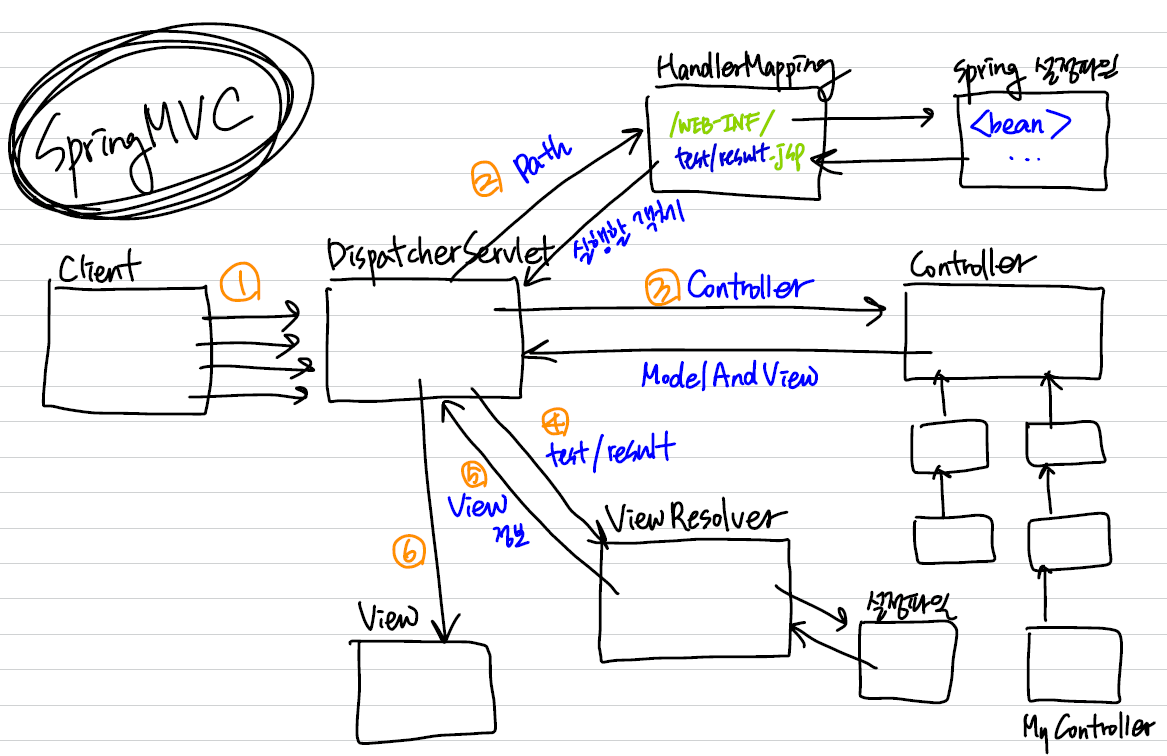 SpringMVC
HandlerMapping
/WEB-INF/
test/result.jsp
Spring 설정파일
<bean>
...
② Path
실행할 객체
Client
①
DispatcherServlet
③ Controller
Controller
ModelAndView
④
test/result
⑤
View
정보
⑥
ViewResolver
View
설정파일
My Controller